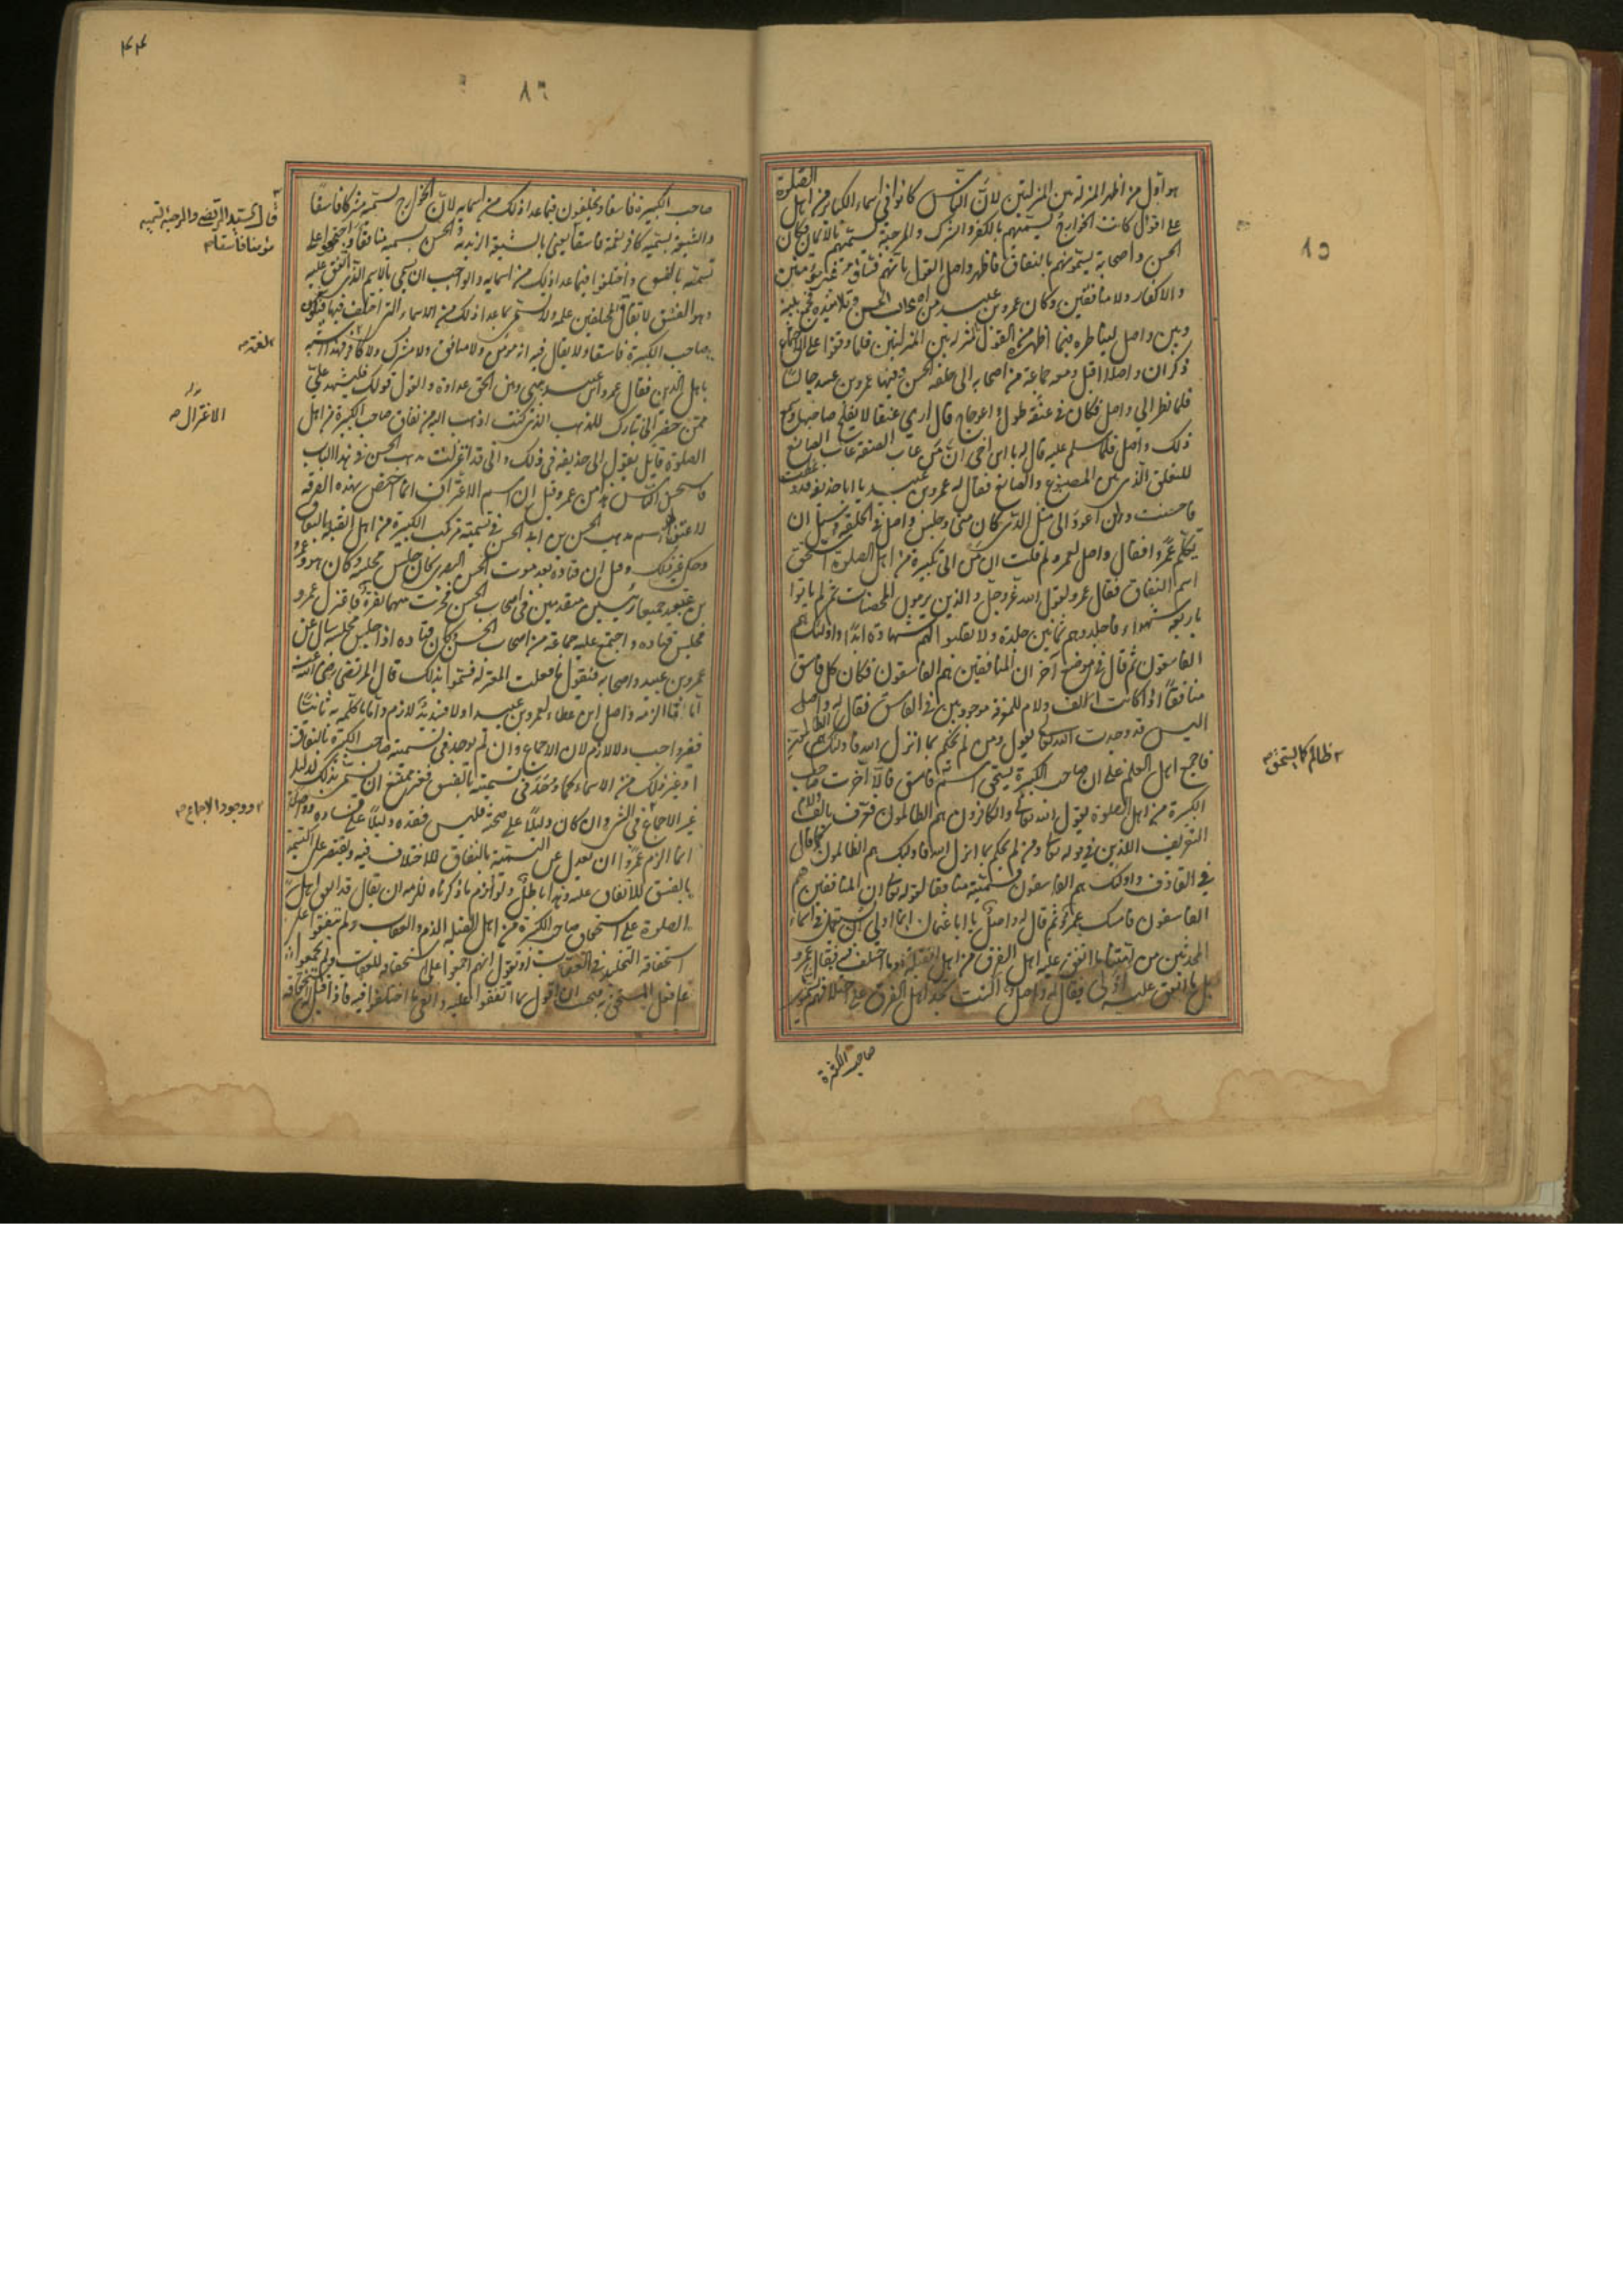 هو اول من اظهر المنزلة بين المنزلتين لان الناس كانوا فى اسماء الكبائر من اهل الصلوة
على اقوال كانت الخوارج تسميهم بالكفر والشرك والمرجئة تسميهم بالايمان وكان
الحسن واصحابه يسمونهم بالنفاق فاظهر واصل القول بانهم فساق غير مؤمنين
ولا كفار ولا منافقين وكان عمرو بن عبيد من اصحاب الحسن وتلاميذه فجمع بينه
وبين واصل ليناظره فيما اظهر من القول بالمنزلة بين المنزلتين فلما وقفوا على الاجتماع
ذكر ان واصلا اقبل ومعه جماعة من اصحابه الى حلقة الحسن وفيها عمرو بن عبيد جالسا
فلما نظر الى واصل فكان فى عنقه طول واعوجاج قال ارى عنقا لا يفلح صاحبها وسمع
ذلك واصل فلما سلم عليه قال له يا ابن اخى ان من عاب الصنعة عاب الصانع
للتعلق الذى بين المصنوع والصانع فقال له عمرو بن عبيد يا ابا حذيفة قد وعظت
فاحسنت ولن اعود الى مثل الذى كان منى وجلس واصل فى الحلقة وسئل ان
يكلم عمروا فقال واصل لعمرو لم قلت ان من اتى كبيرة من اهل الصلوة استحق
اسم النفاق فقال عمرو لقول الله عز وجل والذين يرمون المحصنات ثم لم ياتوا
باربعة شهداء فاجلدوهم ثمانين جلدة ولا تقبلوا لهم شهادة ابدا واولئك هم
الفاسقون ثم قال فى موضع آخر ان المنافقين هم الفاسقون فكان كل فاسق
منافقا اذ كانت الف ولام المعرفة موجودين فى الفاسق فقال له واصل
اليس قد وجدت الله تعالى يقول ومن لم يحكم بما انزل الله فاولئك هم الظالمون
فاجمع اهل العلم على ان صاحب الكبيرة يستحق اسم فاسق
الكبيرة من اهل الصلوة بقول الله تعالى والكافرون هم الظالمون فعرف بالف ولام
التعريف اللذين فى قوله تعالى ومن لم يحكم بما انزل الله فاولئك هم الظالمون كما قال
فى القاذف واولئك هم الفاسقون فسميته منافقا لقوله تعالى ان المنافقين هم
الفاسقون فامسك عمرو ثم قال له واصل يا ابا عثمان ايما اولى ان يستعمل فى اسماء
المحدثين من امتنا ما اتفق عليه اهل الفرق من اهل القبلة او ما اختلف فيه فقال عمرو
بل ما اتفق عليه اولى فقال له واصل الست تجد اهل الفرق على اختلافهم يسمون
صاحب الكبيرة
ظالم كما استحق
١٥
٨٦
٤٤
صاحب الكبيرة فاسقا ويختلفون فيما عدا ذلك من اسمائه لان الخوارج تسميه مشركا فاسقا
والشيعة تسميه كافر نعمة فاسقا يعنى بالشيعة الزيدية والحسن يسميه منافقا فاجتمعوا على
تسميته بالفسق واختلفوا فيما عدا ذلك من اسمائه والواجب ان يسمى بالاسم الذى اتفق عليه
وهو الفسق لاتفاق المختلفين عليه ولا يسمى بما عدا ذلك من الاسماء التى اختلف فيها فيكون
صاحب الكبيرة فاسقا ولا يقال فيه انه مؤمن ولا منافق ولا مشرك ولا كافر فهذا اشبه
باهل الدين فقال عمرو ابن عبيد ما بينى وبين الحق عداوة والقول قولك فليشهد على
من حضر انى تارك للمذهب الذى كنت اذهب اليه من نفاق صاحب الكبيرة من اهل
الصلوة قايل بقول ابى حذيفة فى ذلك وانى قد اعتزلت مذهب الحسن فى هذا الباب
فاستحسن الناس هذا من عمرو وقيل ان اسم الاعتزال انما اختص بهذه الفرقة
لاعتزالهم مذهب الحسن بن ابى الحسن فى تسمية مرتكب الكبيرة من اهل القبلة بالنفاق
وحكى غير ذلك وقيل ان قتادة بعد موت الحسن البصرى كان يجلس مجلسه وكان هو وعمرو
بن عبيد جميعا رئيسين متقدمين فى اصحاب الحسن فجرت بينهما نفرة فاعتزل عمرو
مجلس قتادة واجتمع عليه جماعة من اصحاب الحسن فكان قتادة اذا جلس مجلسه سال عن
عمرو بن عبيد واصحابه فيقول ما فعلت المعتزلة فسموا بذلك قال المرتضى رضى الله عنه
اما ما الزمه واصل ابن عطاء لعمرو بن عبيد اولا فسديد لازم واما ما كلمه به ثانيا
فغير واجب ولا لازم لان الاجماع وان لم يوجد فى تسمية صاحب الكبيرة بالنفاق
او غير ذلك من الاسماء كما وجد فى تسميته بالفسق فغير ممتنع ان يسمى بذلك لدليل
غير الاجماع فى الشىء وان كان دليلا على صحته فليس فقده دليلا على فساده وواصل
انما الزم عمروا ان يعدل عن التسمية بالنفاق للاختلاف فيه ويقتصر على التسمية
بالفسق للاتفاق عليه وهذا باطل ولو لزم ما ذكرناه للزمه ان يقال قد اتفق اهل
الصلوة على استحقاق صاحب الكبيرة من اهل القبلة الذم والعقاب ولم يتفقوا على
استحقاقه التخليد فى العقاب او نقول انهم اجمعوا على استحقاقه للعقاب ولم يجمعوا
على فعل المستحق به فيجب ان اقول بما اتفقوا عليه وانفى ما اختلفوا فيه فاذا قيل استحقاقه
قال السيد المرتضى والمرجئة تسميه
مؤمنا فاسقا
الفقه
الاعتزال
ووجود الاجماع